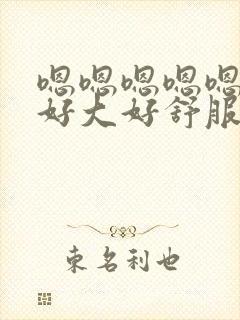 嗯嗯嗯嗯嗯
好大好舒服
束名利也